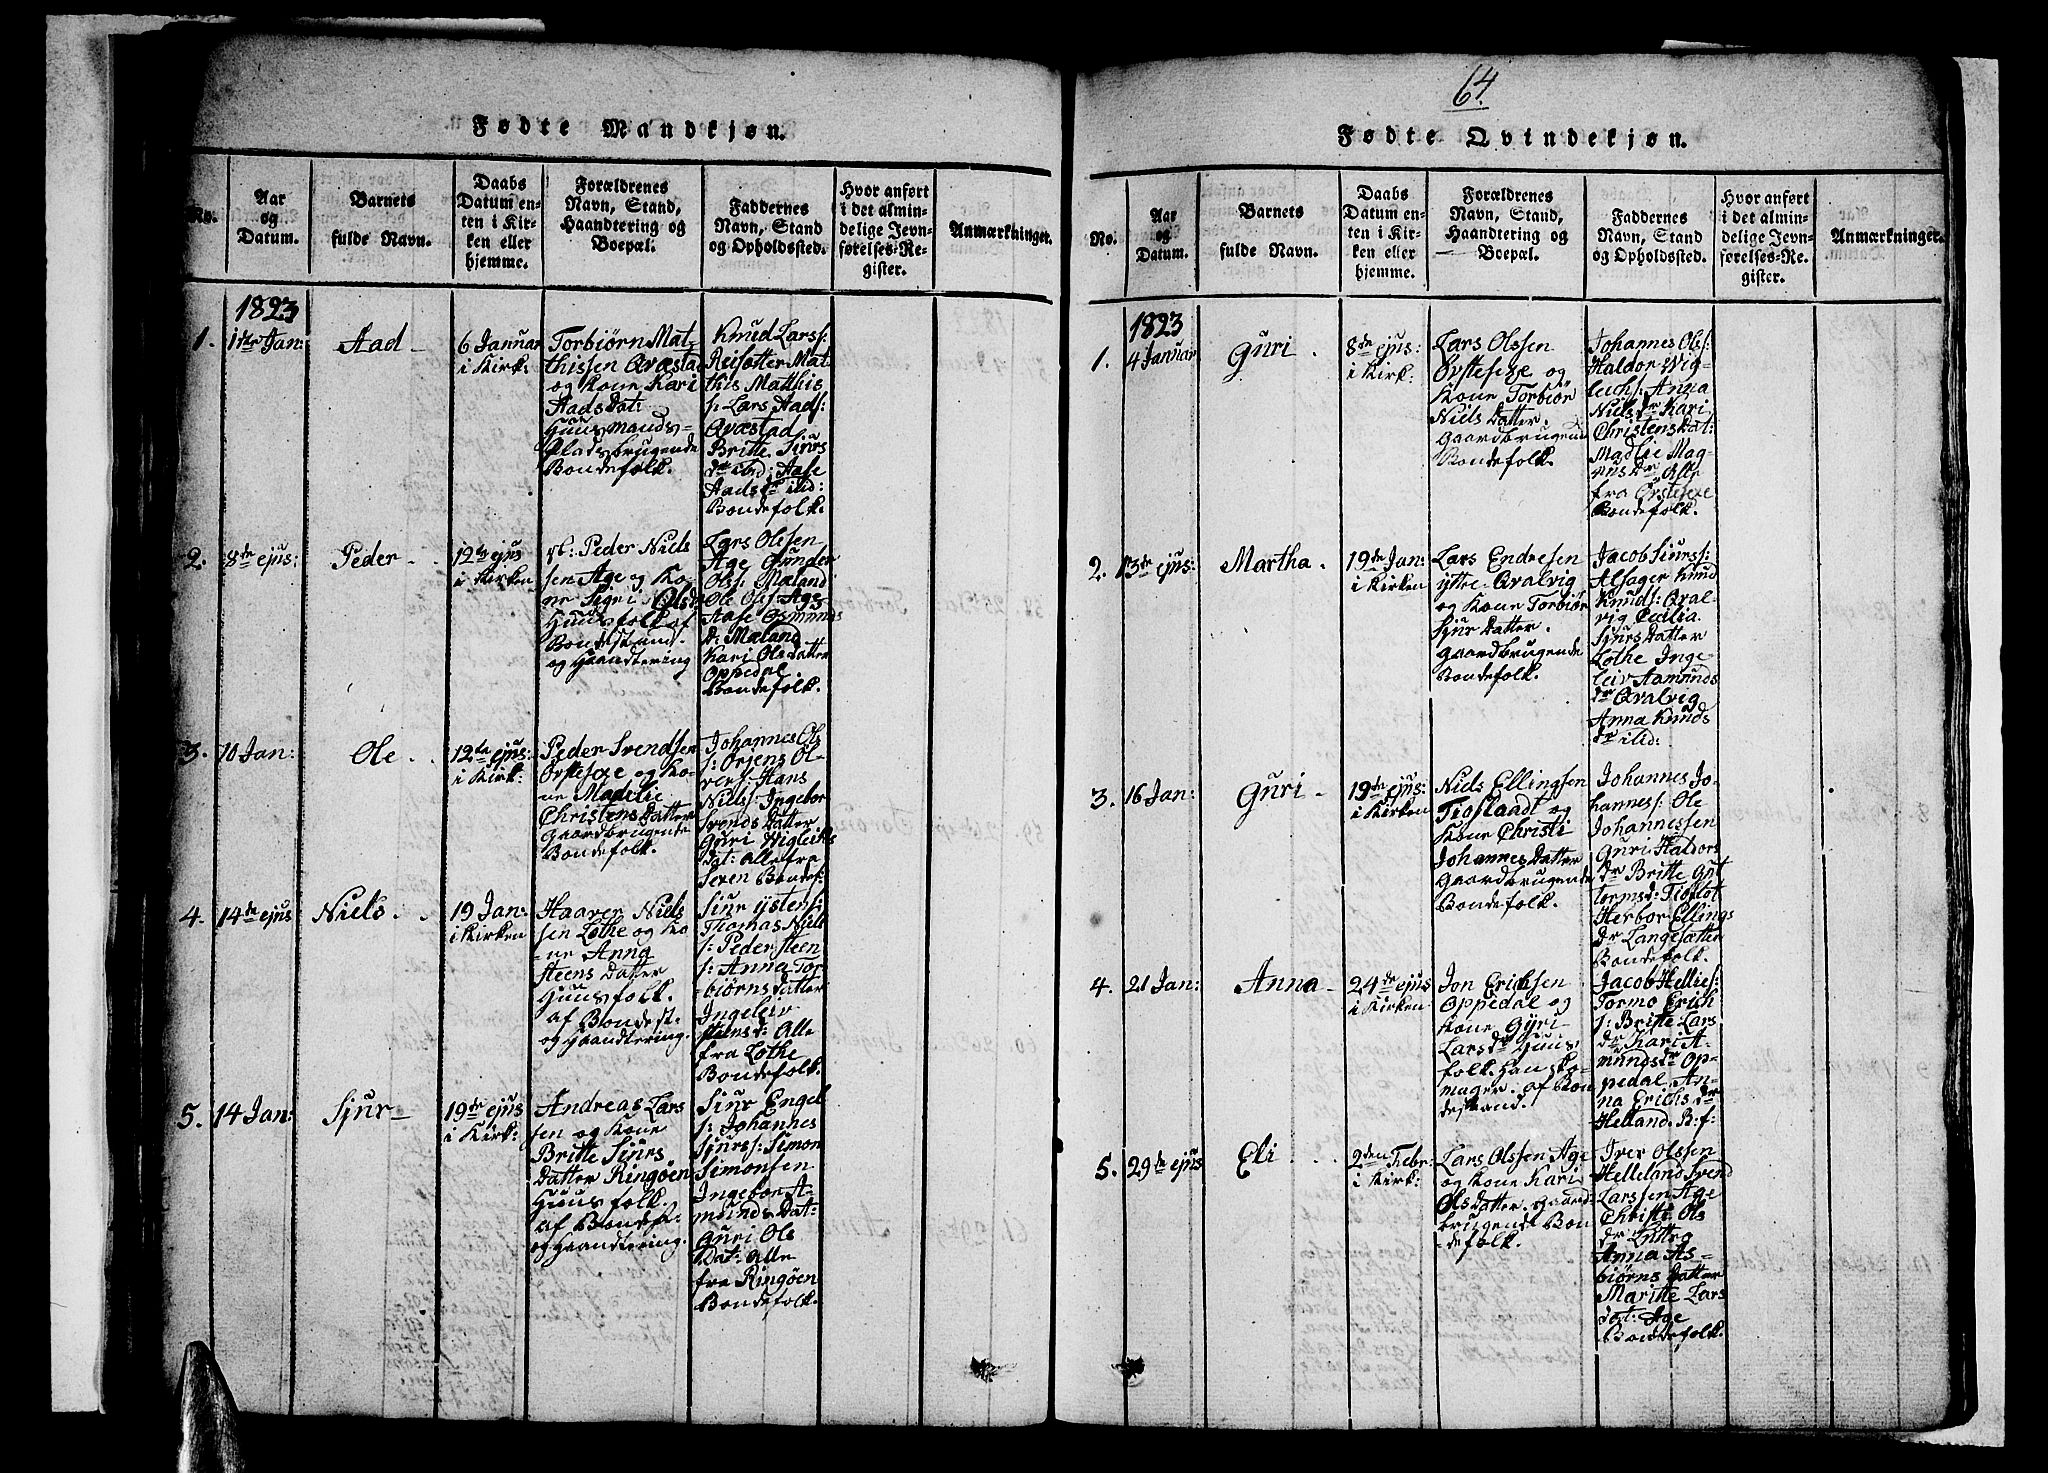 64.
Fødte Mandkjøn.
No.
Aar
og
Datum.
Barnets
fulde Navn.
Daabs
Datum en-
ten i Kir-
ken eller
hjemme.
Forældrenes
Navn, Stand,
Haandtering og
Boepæl.
Faddernes
Navn, Stand
og Opholdssted.
Hvor anført
i det almin-
delige Jevn-
førelses-Re-
gister.
Anmærkninger.
1823
1.
1ste Jan:
Aad
6 Januar
i Kirk:
Torbiørn Mat-
thissen Qvæstad
og Kone Kari
Aads Dat:
Huusmands-
Plads brugende
Bondefolk.
Knud Lars:
Reisætter Mat
this Matthis
s: Lars Aads:
Qvæstad
Britte Siurs
dr ibid: Aase
Aads dr ibid:
Bondefolk.
2.
8de ejus:
Peder
12te ejus
i Kirken
Peder Niels
sen Age og Ko-
ne Sigri Olsdr
Huusfolk af
Bondestand.
og Haandtering
Lars Olesen
Age Gunder
Ols: Mæland
Ole Ols: Age
Aase Osmunds
D: Mæland
Kari Olsdatter
Oppedal.
Bondefolk.
3.
10 Jan:
Ole
12te ejus:
i Kirk:
Peder Svendsen
Ørstesexe og Ko-
ne Madelie
Christens Datter
Gaardbrugende
Bondefolk.
Johannes Ol
s: Ørjens Ol-
vers: Hans
Niels: Ingebor
Svends Datter
Guri Wigleiks
Dat: alle fra
Sexen Bondef:
4.
14de ejus
Niels
19 Jan:
i Kirken
Haaver Niels
sen Lothe og Ko
ne Anna
Steens Datter
Huusfolk.
af Bondest-
og Haandtering.
Siur ystens:
Thomas Niels
s: Peder Steen
s: Anna Tor
biørns Datter
Ingeleiv
Steensd: Alle
fra Lothe
Bondefolk.
5.
14 Jan:
Sjur
19de ejus
i Kirk:
Andreas Lars
sen og Kone
Britte Siurs
Datter Ringøen
Huusfolk.
af Bondest-
og Haandtering.
Siur Engel
s: Johannes
Sjurs: Simon
Simonsen
Ingebor A-
munds Dat-
Guri Ole
Dat: alle
fra Ringøen
Bondefolk.
Fødte Qvindekjøn.
No.
Aar
og
Datum.
Barnets
fulde Navn.
Daabs
Datum en-
ten i Kir-
ken eller
hjemme.
Forældrenes
Navn, Stand,
Haandtering og
Boepæl.
Faddernes
Navn, Stand
og Opholdssted.
Hvor anført
i det almin-
delige Jevn-
førelses-Re-
gister.
Anmærkninger.
1823
1.
4 Januar
Guri
8de ejus:
i Kirk:
Lars Olssen
Ørstesexe og
Kone Torbiør
Niels Datter.
Gaardbrugende
Bondefolk.
Johannes Ols:
Haldor Wig-
leichs: Anna
Niels dr Kari
Christens Dat:
Madlie Mag-
nus dr alle
fra Ørstesexe
Bondefolk.
2.
13de ejus:
Martha
19de Jan:
i Kirken
Lars Endresen
ytre Qvalvig
og Kone Torbiør
Sjur Datter.
Gaardbrugende
Bondefolk.
Jacob Siurs:
Alsager Knud
Knuds: Qval-
vig Cecilia
Sjurs Datter
Lothe Inge-
leiv Aamunds
dr Qvalvig
Anna Knuds
dr ibid:
3.
16 Jan:
Guri
19de ejus:
i Kirken
Niels Ellingsen
Tioflaadt og
Kone Christi
Johannes Datter
Gaardbrugende
Bondefolk.
Johannes Jo-
hannes: Ole
Johannessen
Guri Haldors
dr Britte Gut
torms d: Tioflot
Herbor Ellings
dr Langesætter
Bondefolk.
4.
21 Jan:
Anna
24de ejus
i Kirken
Jon Erichsen
Oppedal og
Kone Gÿri
Lars dr Huus
folk. Han Sko-
mager. af Bon
destand.
Jacob Hellies:
Tormo Erich
s: Britte Lars
dr Kari A-
munds dr Op-
pedal. An-
na Erichs dr
Helland. B:f:
5.
29de ejus
Eli
2den Febr:
i Kirk:
Lars Olssen Age
og Kone Kari
Ols Datter. Gaard-
brugende Bon
defolk.
Iver Olssen
Helleland Svend
Larssen Age
Christi Ols
dr
Anna As-
biørns Datter
Maritte Lars
dat: Age
Bondefolk.